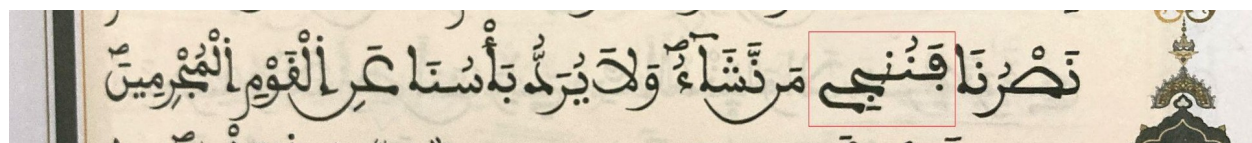 نَصْرُنَا فَنُنجِے مَن نَّشَآءُ وَلَا يُرَدُّ بَأْسُنَا عَنِ اِ۬لْقَوْمِ اِ۬لْمُجْرِمِينَ